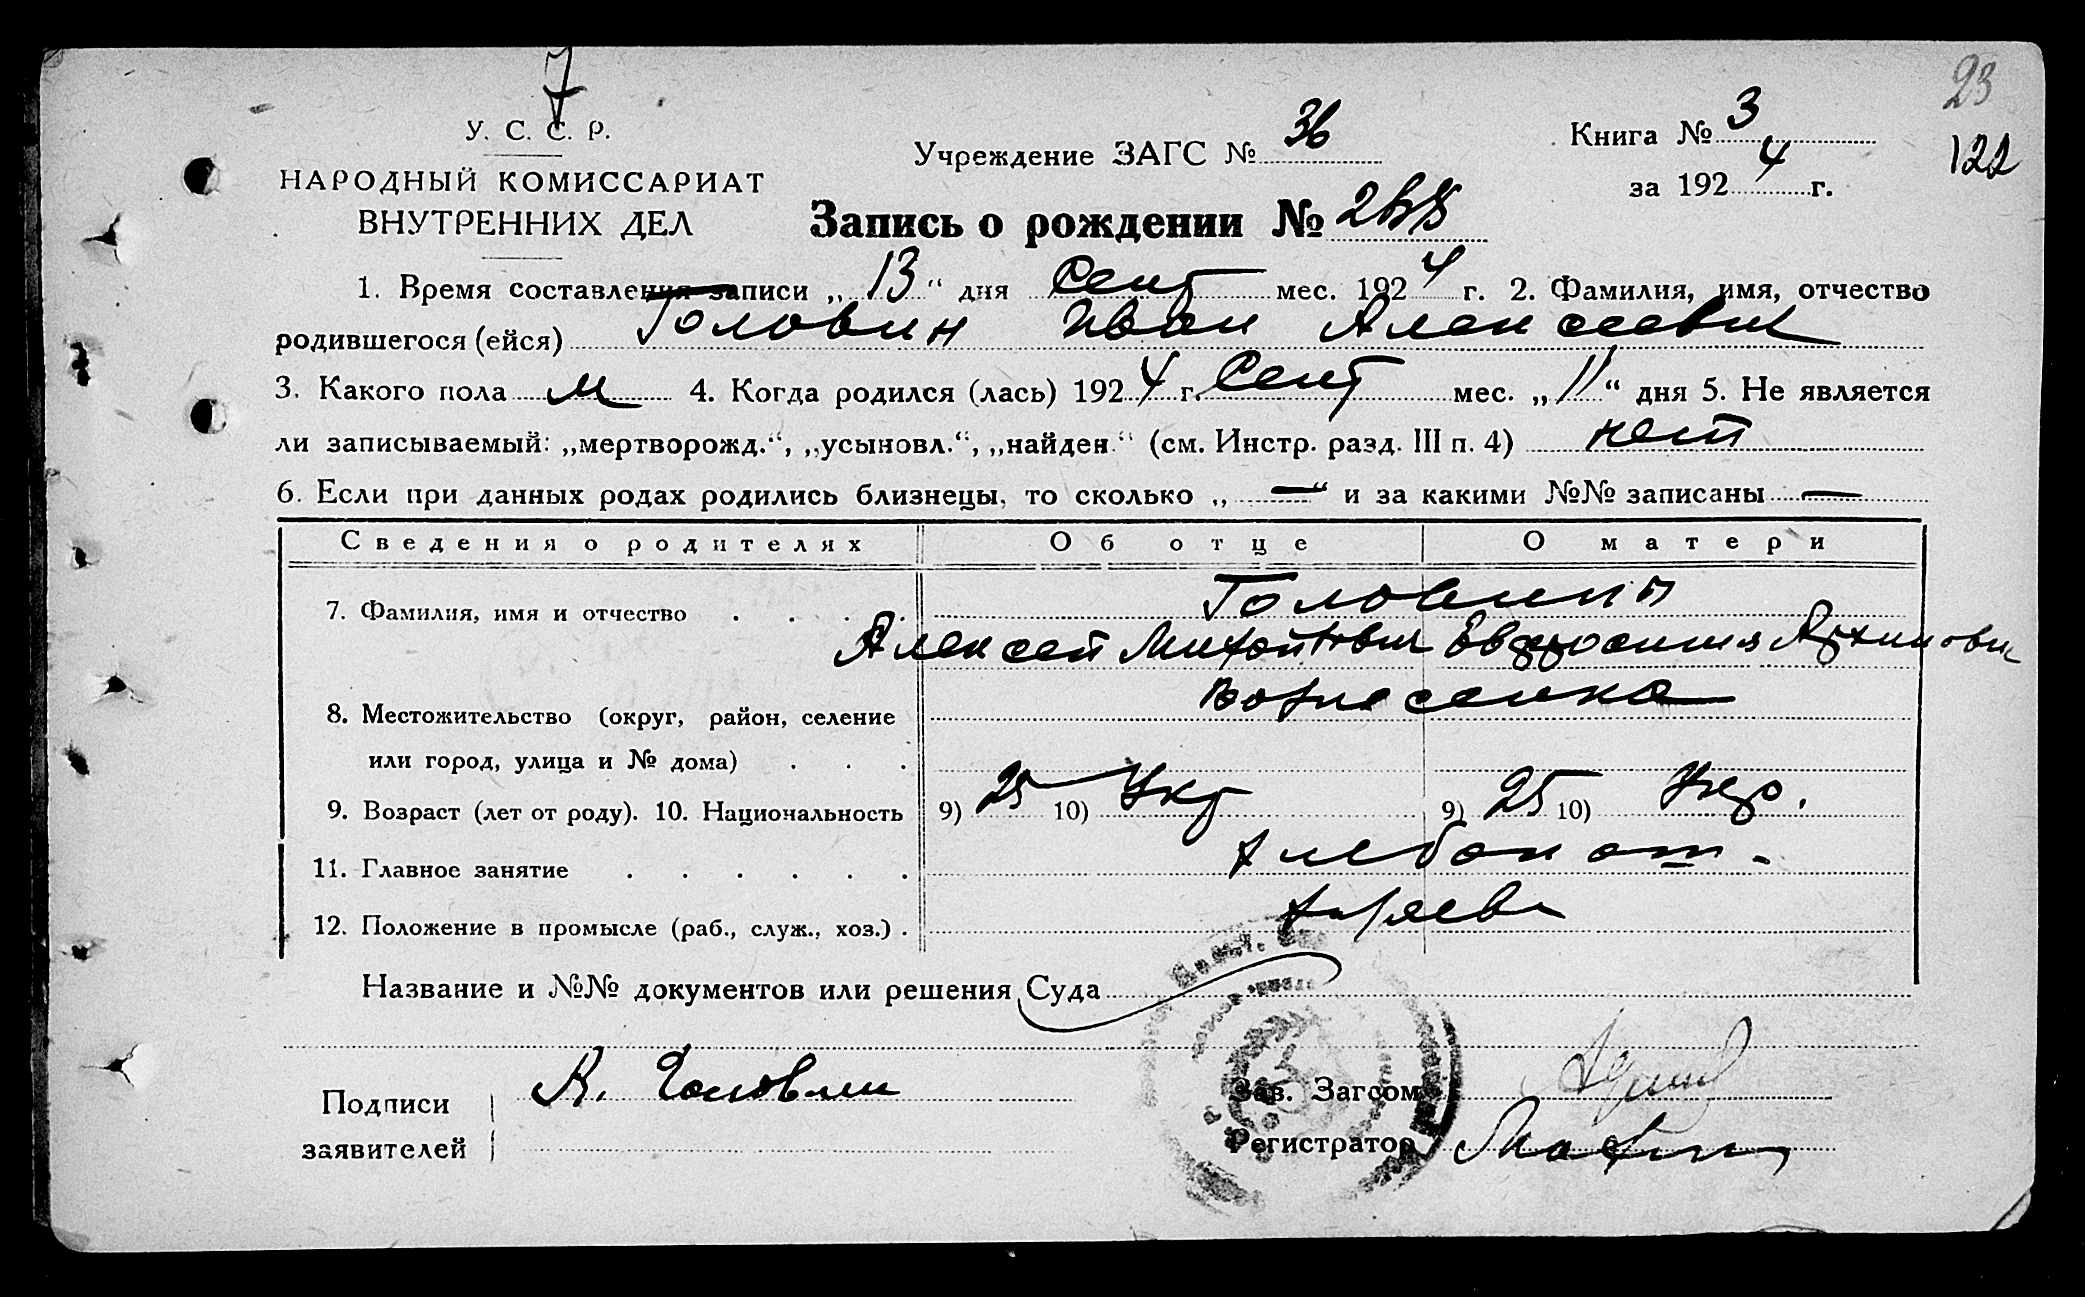 23
7
У. С. С. Р.
Учреждение ЗАГС № 36
Книга № 3
122
НАРОДНЫЙ КОМИССАРИАТ
за 1924 г.
ВНУТРЕННИХ ДЕЛ
Запись о рождении №
1. Время составления записи „13“ дня Сент мес. 1924 г. 2. Фамилия, имя, отчество
родившегося (ейся) Головин Иван Алексеевич
3. Какого пола м 4. Когда родился (лась) 1924 г. Сент мес. „11“ дня 5. Не является
ли записываемый: „мертворожд.“, „усыновл.“, „найден.“ (см. Инстр. разд. III п. 4) нет
6. Если при данных родах родились близнецы, то сколько „—“ и за какими №№ записаны —
Сведения о родителях Об отце О матери
7. Фамилия, имя и отчество . . . . Головины
Алексей Михайлович Евфросиния Архиповн
8. Местожительство (округ, район, селение Вознесенка
или город, улица и № дома) . . .
9. Возраст (лет от роду). 10. Национальность 9) 25 10) Укр 9) 25 10) Укр.
11. Главное занятие . . . . . . хлебопаш.
12. Положение в промысле (раб., служ., хоз.) . хозяева
Название и №№ документов или решения Суда
Подписи А. Головин
Зав. Загсом
заявителей
Регистратор